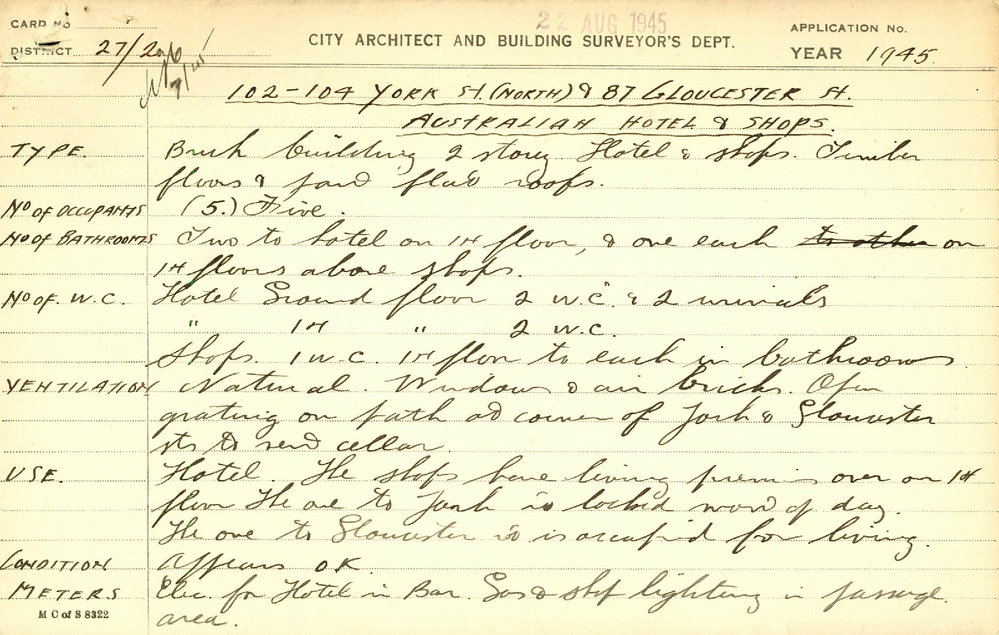 CARD No
22 AUG 1945
APPLICATION No.
DISTRICT 27/2
CITY ARCHITECT AND BUILDING SURVEYOR'S DEPT.
YEAR 1945
102-104 YORK St. (NORTH) & 87 GLOUCESTER St.
AUSTRALIAN HOTEL & SHOPS.
TYPE. Brick building 2 storey. Hotel & shops. Timber
floors & and flat roofs.
No OF OCCUPANTS (5.) Five.
No OF BATHROOMS Two to hotel on 1st floor, & one each to other on
1st floors above shops.
No OF. W.C. Hotel Ground floor 2 W.C. & 2 urinals
" 1st " 2 W.C.
Shops. 1 W.C. 1st floor to each in bathrooms
VENTILATION Natural. Windows & air bricks. Open
grating on path at corner of York & Gloucester
sts to vent cellar.
USE. Hotel. The shops have living premises over on 1st
floor The one to York is locked most of day.
The one to Gloucester st is occupied for living.
CONDITION Appears OK.
METERS Elec. for Hotel in Bar. Gas & shop lighting in passage
area.
M C of S 8322